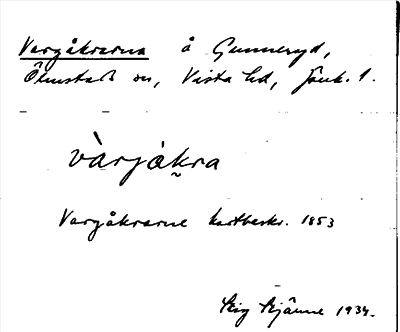 Vargåkrarna å Gunneryd,
Ölmstad sn, Vista hd, Jönk. l.
vàrjåkra
Vargåkrarne kartbeskr. 1853
Stig Bjärme 1934.